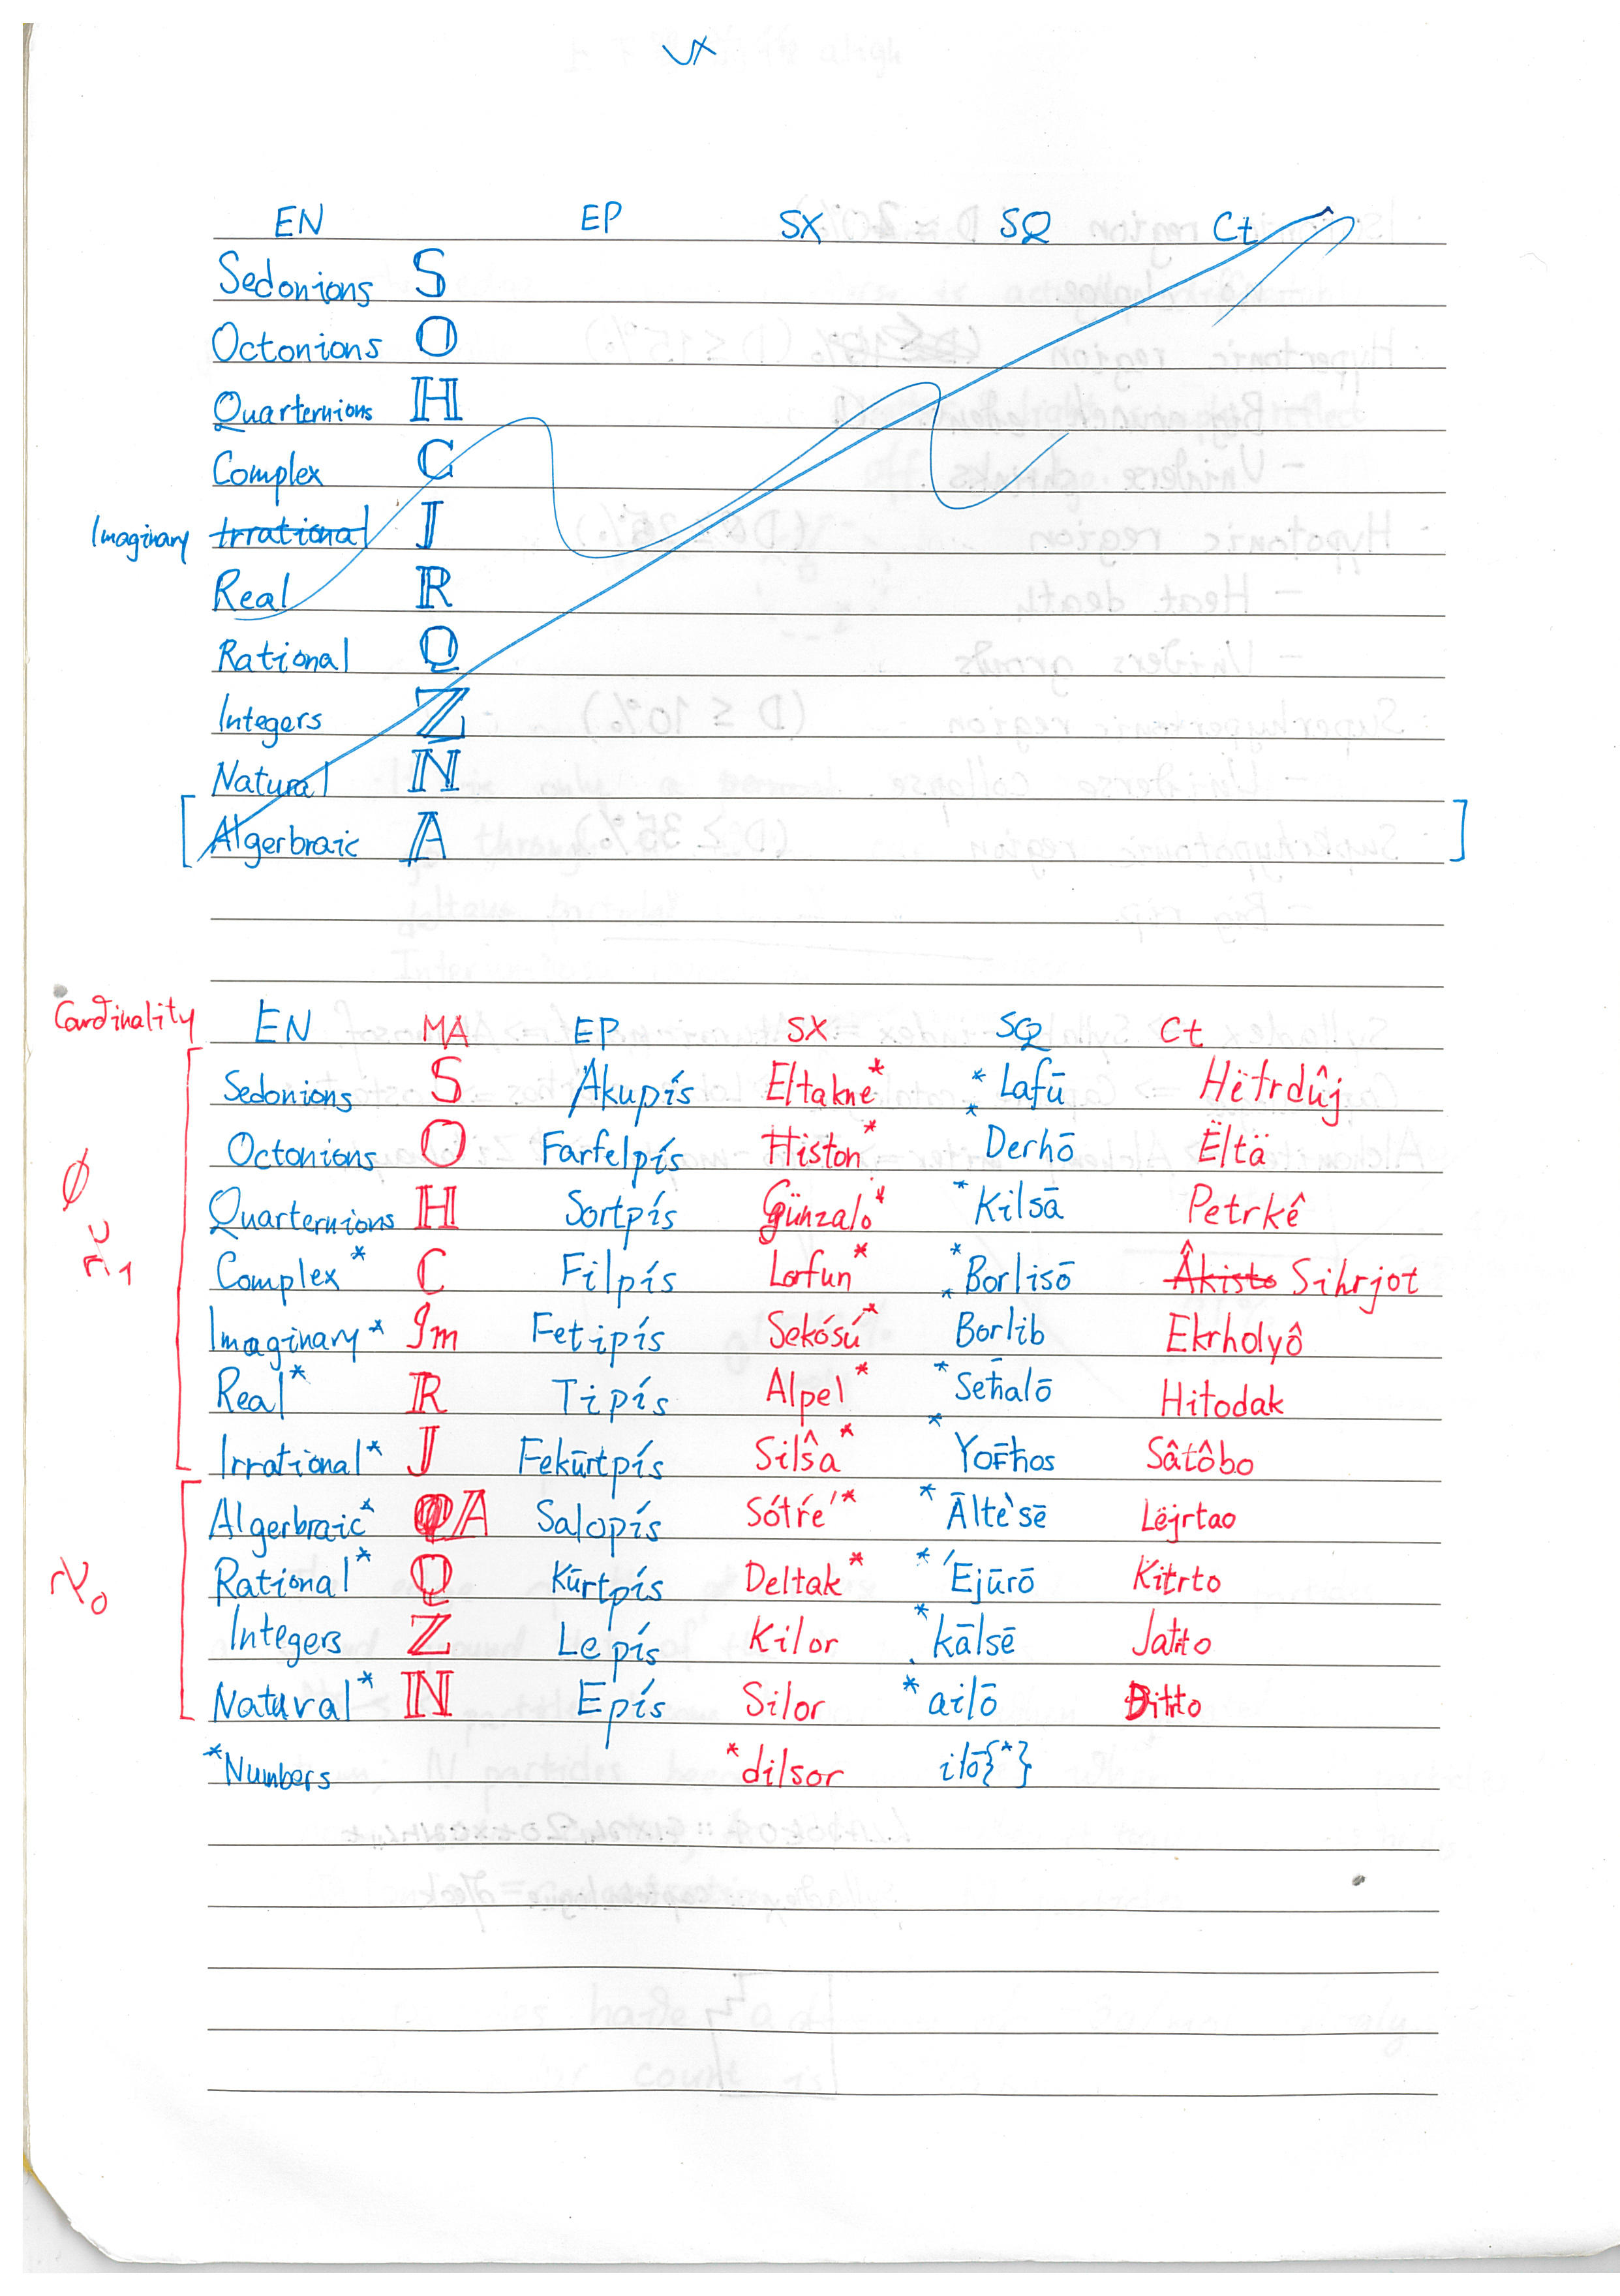 EN EP SX SQ Ct
Sedonions S
Octonions O
Quarternions H
Complex C
Imaginary Irrational I
Real R
Rational Q
Integers Z
Natural N
[Algerbraic A ]
Cardinality EN MA EP SX SQ Ct
Sedonions S Akupís Eltakne* *Lafū Hëtrdûj
Octonions O Farfelpís Histon* *Derhō Ëltä
Quarternions H Sortpís Günzalo* *Kilsā Petrkê
Complex* C Filpís Lorfun* *Borlisō Âkisto Sihrjot
Imaginary* Im Fetipís Sekósú* *Borlib Ekrholyô
Real* R Tipís Alpel* *Señalō Hitodak
Irrational* J Fekūrtpís Silŝa* * Sâtôbo
Algerbraic* A Salopís Sótŕe'* *Ālte`sē Lëjrtao
ℵ0 Rational* Q Kūrtpís Deltak* *'Ejūrō Kitrto
Integers Z Lepís Kilor *kālsē Jatto
Natural* N Epís Silor *ailō Ditto
*Numbers *dilsor ilō{*}